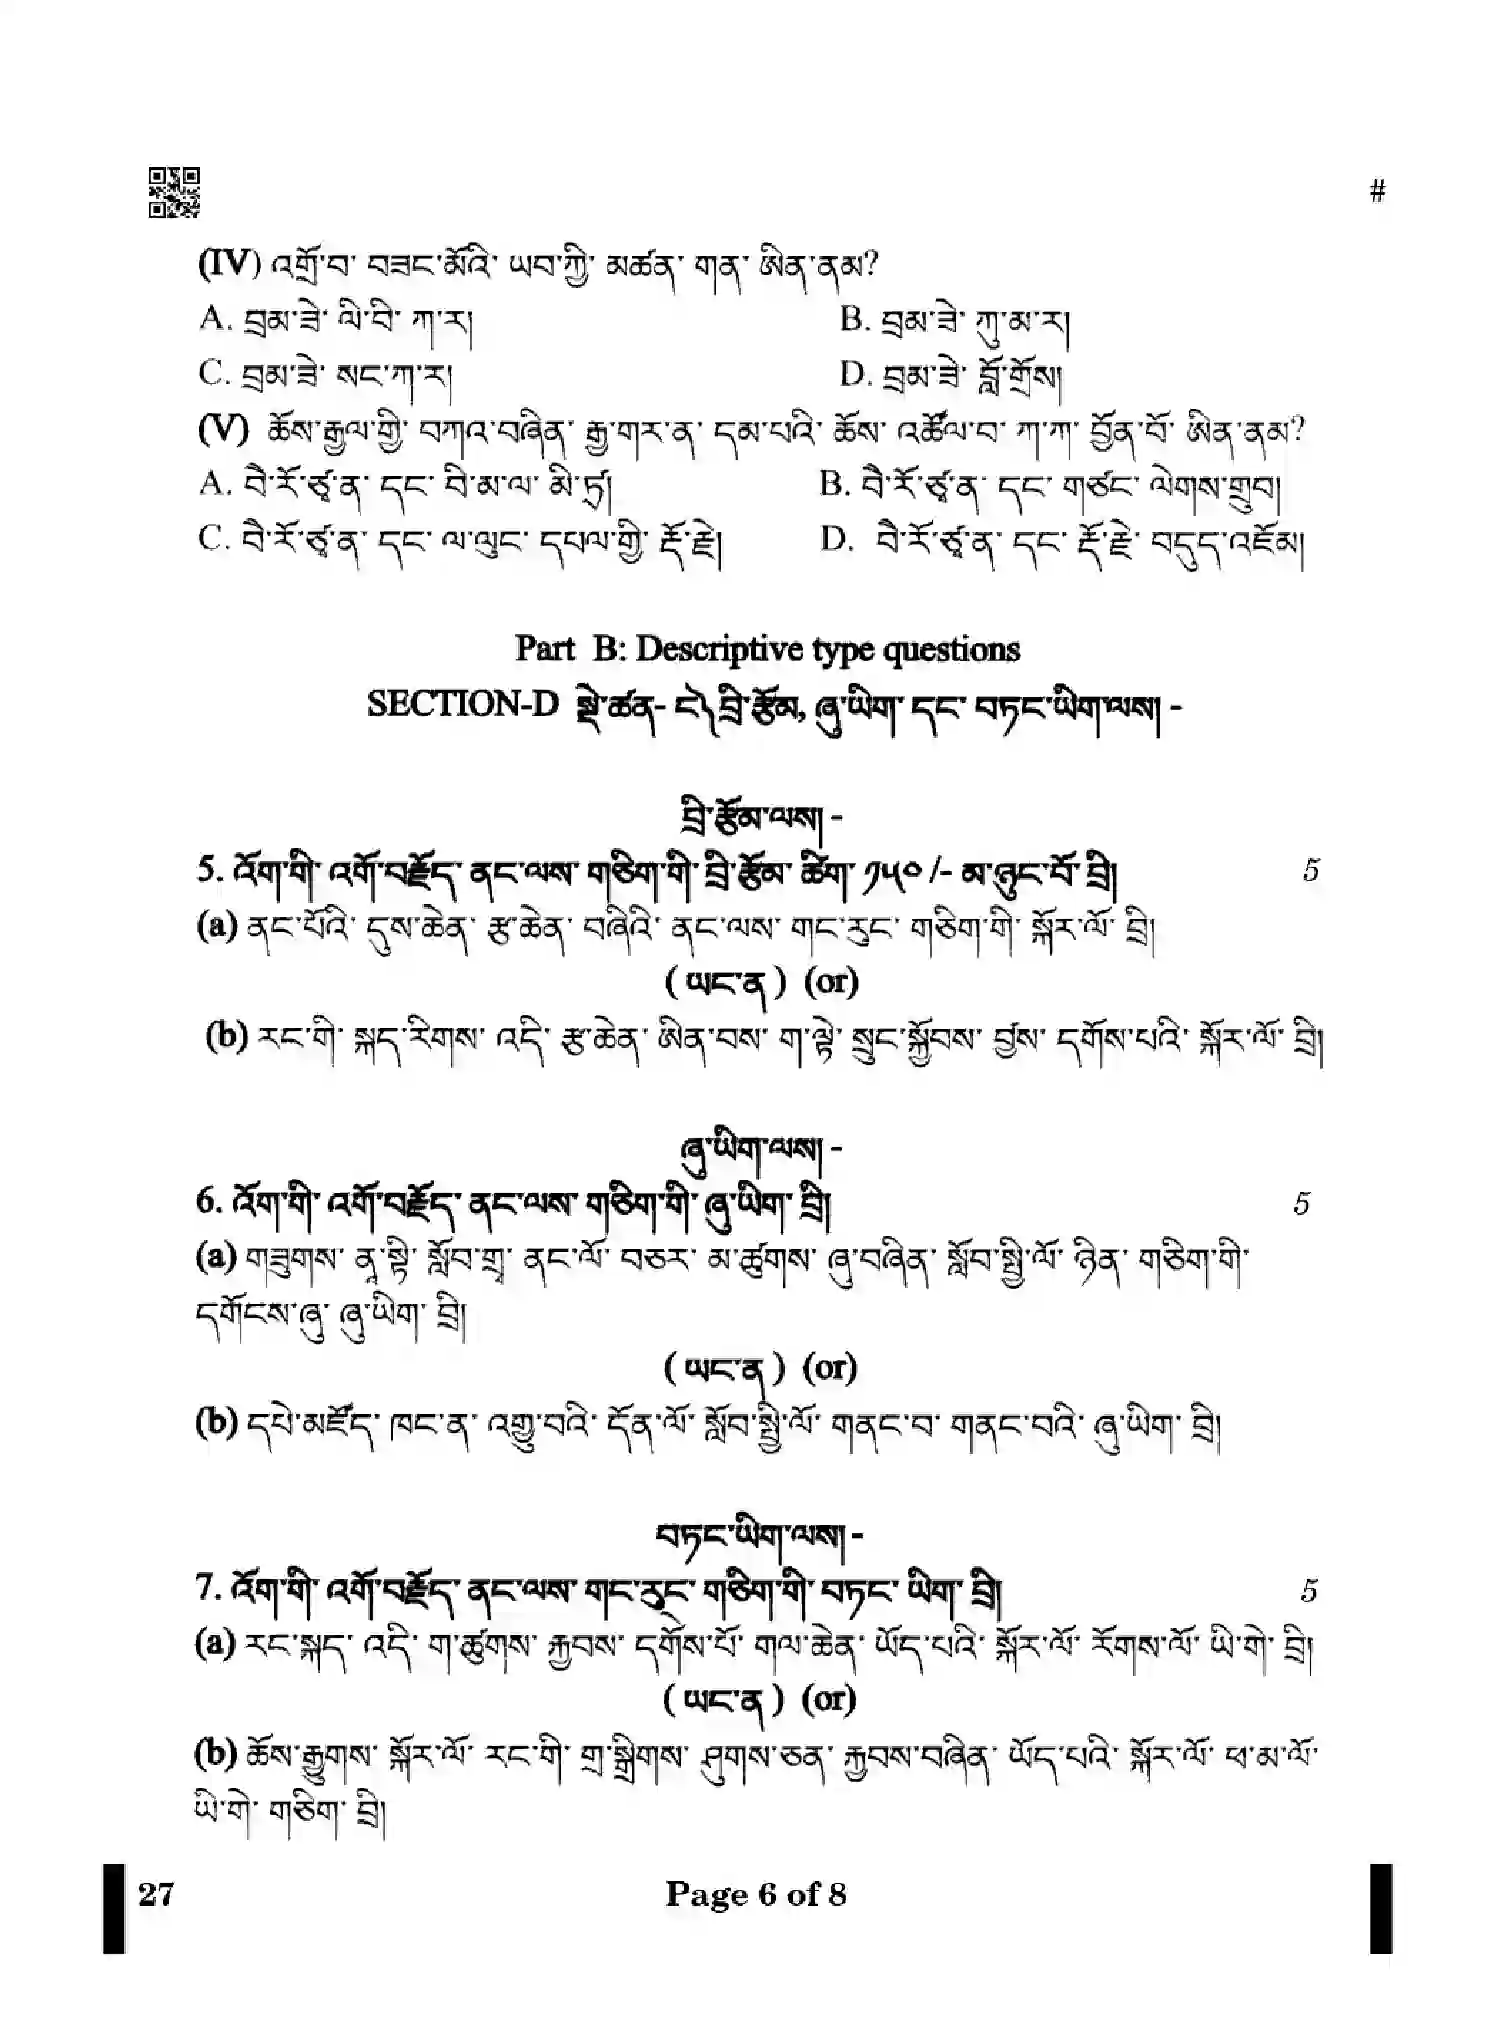 #
(IV) འགྲོ་བ་ བཟང་མོའི་ ཡབ་ཀྱི་ མཚན་ གན་ ཨིན་ནམ?
A. བྲམ་ཟེ་ ལི་བི་ ཀ་ར། B. བྲམ་ཟེ་ ཀུ་མ་ར།
C. བྲམ་ཟེ་ སང་ཀ་ར། D. བྲམ་ཟེ་ བློ་གྲོས།
(V) ཆོས་རྒྱལ་གྱི་ བཀའ་བཞིན་ རྒྱ་གར་ན་ དམ་པའི་ ཆོས་ འཚོལ་བ་ ཀ་ཀ་ བྱོན་བོ་ ཨིན་ནམ?
A. བཻ་རོ་ཙྭ་ན་ དང་ བི་མ་ལ་ མི་ཏྲ། B. བཻ་རོ་ཙྭ་ན་ དང་ གཙང་ ལེགས་གྲུབ།
C. བཻ་རོ་ཙྭ་ན་ དང་ ལ་ལུང་ དཔལ་གྱི་ རྡོ་རྗེ། D. བཻ་རོ་ཙྭ་ན་ དང་ རྡོ་རྗེ་ བདུད་འཇོམ།
Part B: Descriptive type questions
SECTION-D སྡེ་ཚན- ང༽ བྲི་རྩོམ, ཞུ་ཡིག་ དང་ བཏང་ཡིག་ལས། -
བྲི་རྩོམ་ལས། -
5. འོག་གི་ འགོ་བརྗོད་ ནང་ལས་ གཅིག་གི་ བྲི་རྩོམ་ ཚིག་ ༡༥༠ /- མ་ཉུང་བོ་ བྲི། 5
(a) ནང་པོའི་ དུས་ཆེན་ རྩ་ཆེན་ བཞིའི་ ནང་ལས་ གང་རུང་ གཅིག་གི་ སྐོར་ལོ་ བྲི།
( ཡང་ན ) (or)
(b) རང་གི་ སྐད་རིགས་ འདི་ རྩ་ཆེན་ ཨིན་བས་ ག་ལྟེ་ སྲུང་སྐྱོབས་ བྱས་ དགོས་པའི་ སྐོར་ལོ་ བྲི།
ཞུ་ཡིག་ལས། -
6. འོག་གི་ འགོ་བརྗོད་ ནང་ལས་ གཅིག་གི་ ཞུ་ཡིག་ བྲི། 5
(a) གཟུགས་ ན་སྟེ་ སློབ་གྲྭ་ ནང་ལོ་ བཅར་ མ་ཚུགས་ ཞུ་བཞིན་ སློབ་སྤྱི་ལོ་ ཉིན་ གཅིག་གི་
དགོངས་ཞུ་ ཞུ་ཡིག་ བྲི།
( ཡང་ན ) (or)
(b) དཔེ་མཛོད་ ཁང་ན་ འགྱུ་བའི་ དོན་ལོ་ སློབ་སྤྱི་ལོ་ གནང་བ་ གནང་བའི་ ཞུ་ཡིག་ བྲི།
བཏང་ཡིག་ལས། -
7. འོག་གི་ འགོ་བརྗོད་ ནང་ལས་ གང་རུང་ གཅིག་གི་ བཏང་ ཡིག་ བྲི། 5
(a) རང་སྐད་ འདི་ ག་ཚུགས་ རྐྱབས་ དགོས་པོ་ གལ་ཆེན་ ཡོད་པའི་ སྐོར་ལོ་ རོགས་ལོ་ ཡི་གེ་ བྲི།
( ཡང་ན ) (or)
(b) ཆོས་རྒྱུགས་ སྐོར་ལོ་ རང་གི་ གྲ་སྒྲིགས་ ཤུགས་ཅན་ རྐྱབས་བཞིན་ ཡོད་པའི་ སྐོར་ལོ་ ཕ་མ་ལོ་
ཡི་གེ་ གཅིག་ བྲི།
27 Page 6 of 8